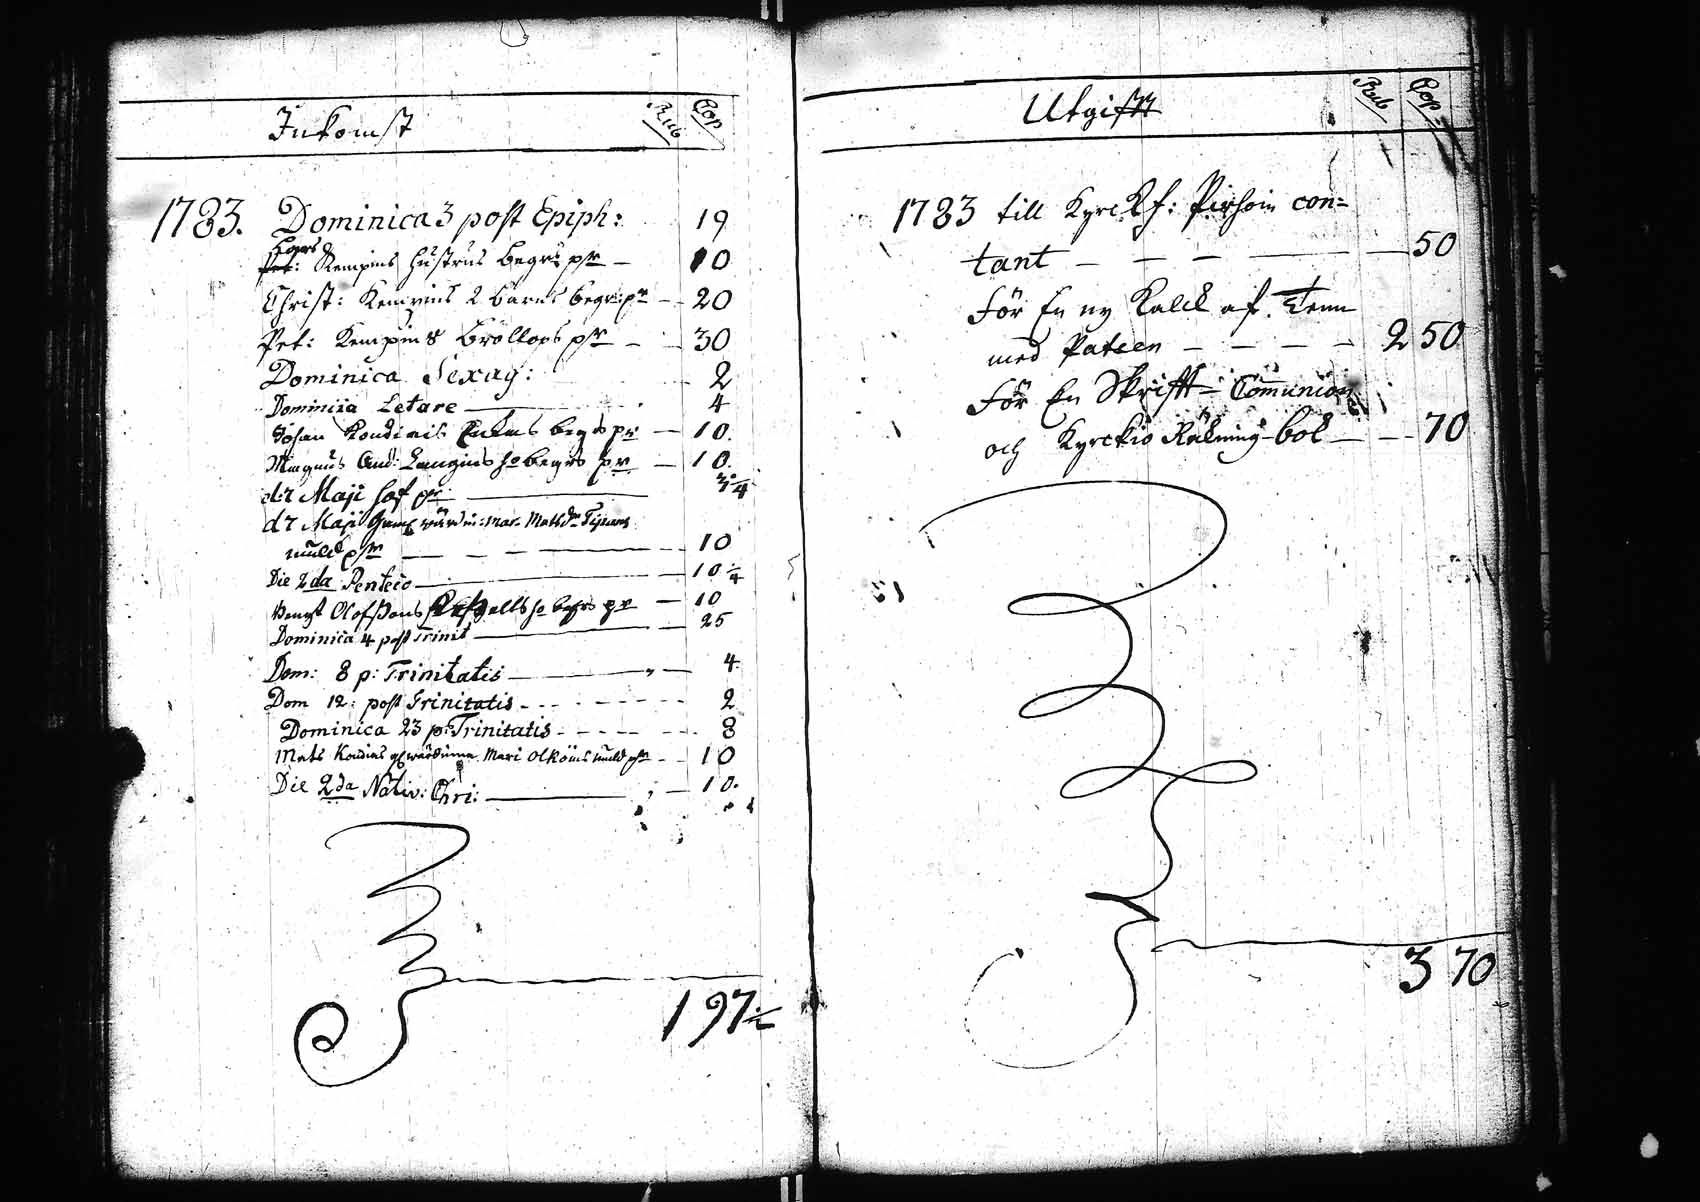 Inkomst
Rub Cop
1783. Dominica 3 post Epiph: 19
Hans
Pet: Kempins hustrus begr: pgr — 10
Christ: Kempins 2 barns begr: pgr — 20
Pet: Kempins Bröllops pgr — 30
Dominica Sexag: 2
Dominica Letare — 4
Johan begr pgr — 10.
Magnus And: begrs pgr — 10.
d: 7 Maji haf pgr —
d 7 Maji Mats
pgr — 10
Die 2da Pentec — 10 1/4
Bengt Olofssons begrs pgr — 10
Dominica 4 post Trinit — 25
Dom: 8 p: Trinitatis — 4
Dom 12: post Trinitatis — 2
Dominica 23 p: Trinitatis — 8
Mats wärdinna Mari — 10
Die 2da Nativ: Chri: — 10.
197
Utgifft
Rub Cop
1783 till Kyrck con=
tant — 50
För En ny Kalck af Tenn
med Pateen — 2 50
För En Skrifft= Com̄union
och Kyrckio Räkning=bok — 70
3 70